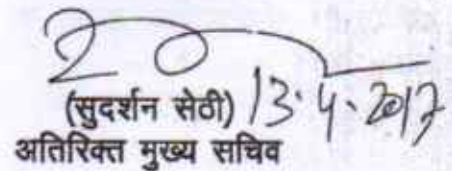 (सुदर्शन सेठी) 13.4.2017
अतिरिक्त मुख्य सचिव